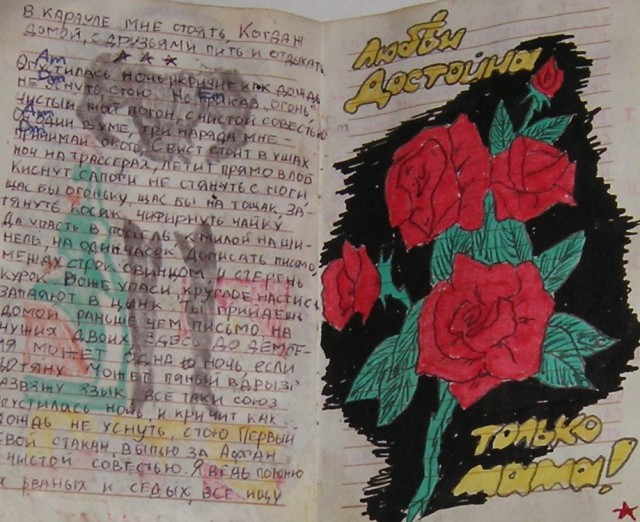 В КАРАУЛЕ МНЕ СТОЯТЬ, КОГДА Н
ДОМОЙ, С ДРУЗЬЯМИ ПИТЬ И ОТДЫХАТЬ
Am
ОПУСТИЛАСЬ НОЧЬ И КРИЧИТ КАК ДОЖДЬ
НЕ УСНУТЬ СТОЮ
ЧИСТЫЙ МОЙ ПОГОН, С ЧИСТОЙ СОВЕСТЬЮ
ОДИН В УМЕ, ТРИ НАРЯДА МНЕ -
ПРИНИМАЙ СВИСТ СТОИТ В УШАХ
НОЧ НА ТРАССЕРАХ, ЛЕТИТ ПРЯМО В ЛОБ
КИСНУТ САПОГИ НЕ СТЯНУТЬ С НОГИ
ЩАС БЫ ОГОНЬКУ, ЩАС БЫ НАТОЩАК, ЗА-
ТЯНУТЬ КОСЯК, ЧИФИРНУТЬ ЧАЙКУ
ДА УПАСТЬ В ПОСТЕЛЬ К МИЛОЙ НА ШИ-
НЕЛЬ, НА ОДИН ЧАСОК ДОПИСАТЬ ПИСЬМО,
МЕШАЯ СТРОК СВИНЦОМ, И СТЕРЕНЬ
КУРОК. БОЖЕ УПАСИ, КРУГЛОЕ
ЗАПАЯЮТ В ЦЫНК. ТЫ ПРИДЕШЬ
ДОМОЙ РАНЬШЕ ЧЕМ ПИСЬМО НА
ЧУЖИХ ДВОИХ. ЗДЕСЬ ДО ДЕМБЕ-
ЛЯ МОЖЕТ ОДНА НОЧЬ, ЕСЛИ
ДОТЯНУ. МОЖЕТ ПЯНЫЙ ВДРЫЗГ
РАЗВЯЖУ ЯЗЫК ВСЕ ТАКИ СОЮЗ
ОПУСТИЛАСЬ НОЧЬ, И КРИЧИТ КАК
ДОЖДЬ НЕ УСНУТЬ, СТОЮ. ПЕРВЫЙ
СВОЙ СТАКАН, ВЫПЬЮ ЗА АФГАН
С ЧИСТОЙ СОВЕСТЬЮ. Я ВЕДЬ ПОМНЮ
Х РВАНЫХ И СЕДЫХ, ВСЕ ИЩУ
Любви
Достойна
только
мама!